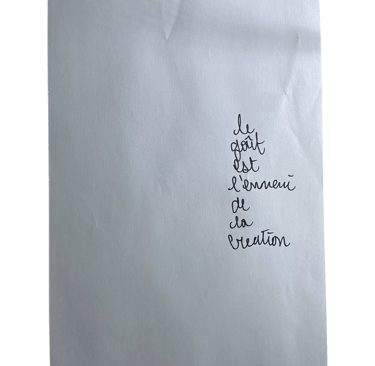 le
goût
est
l'ennemi
de
la
creation